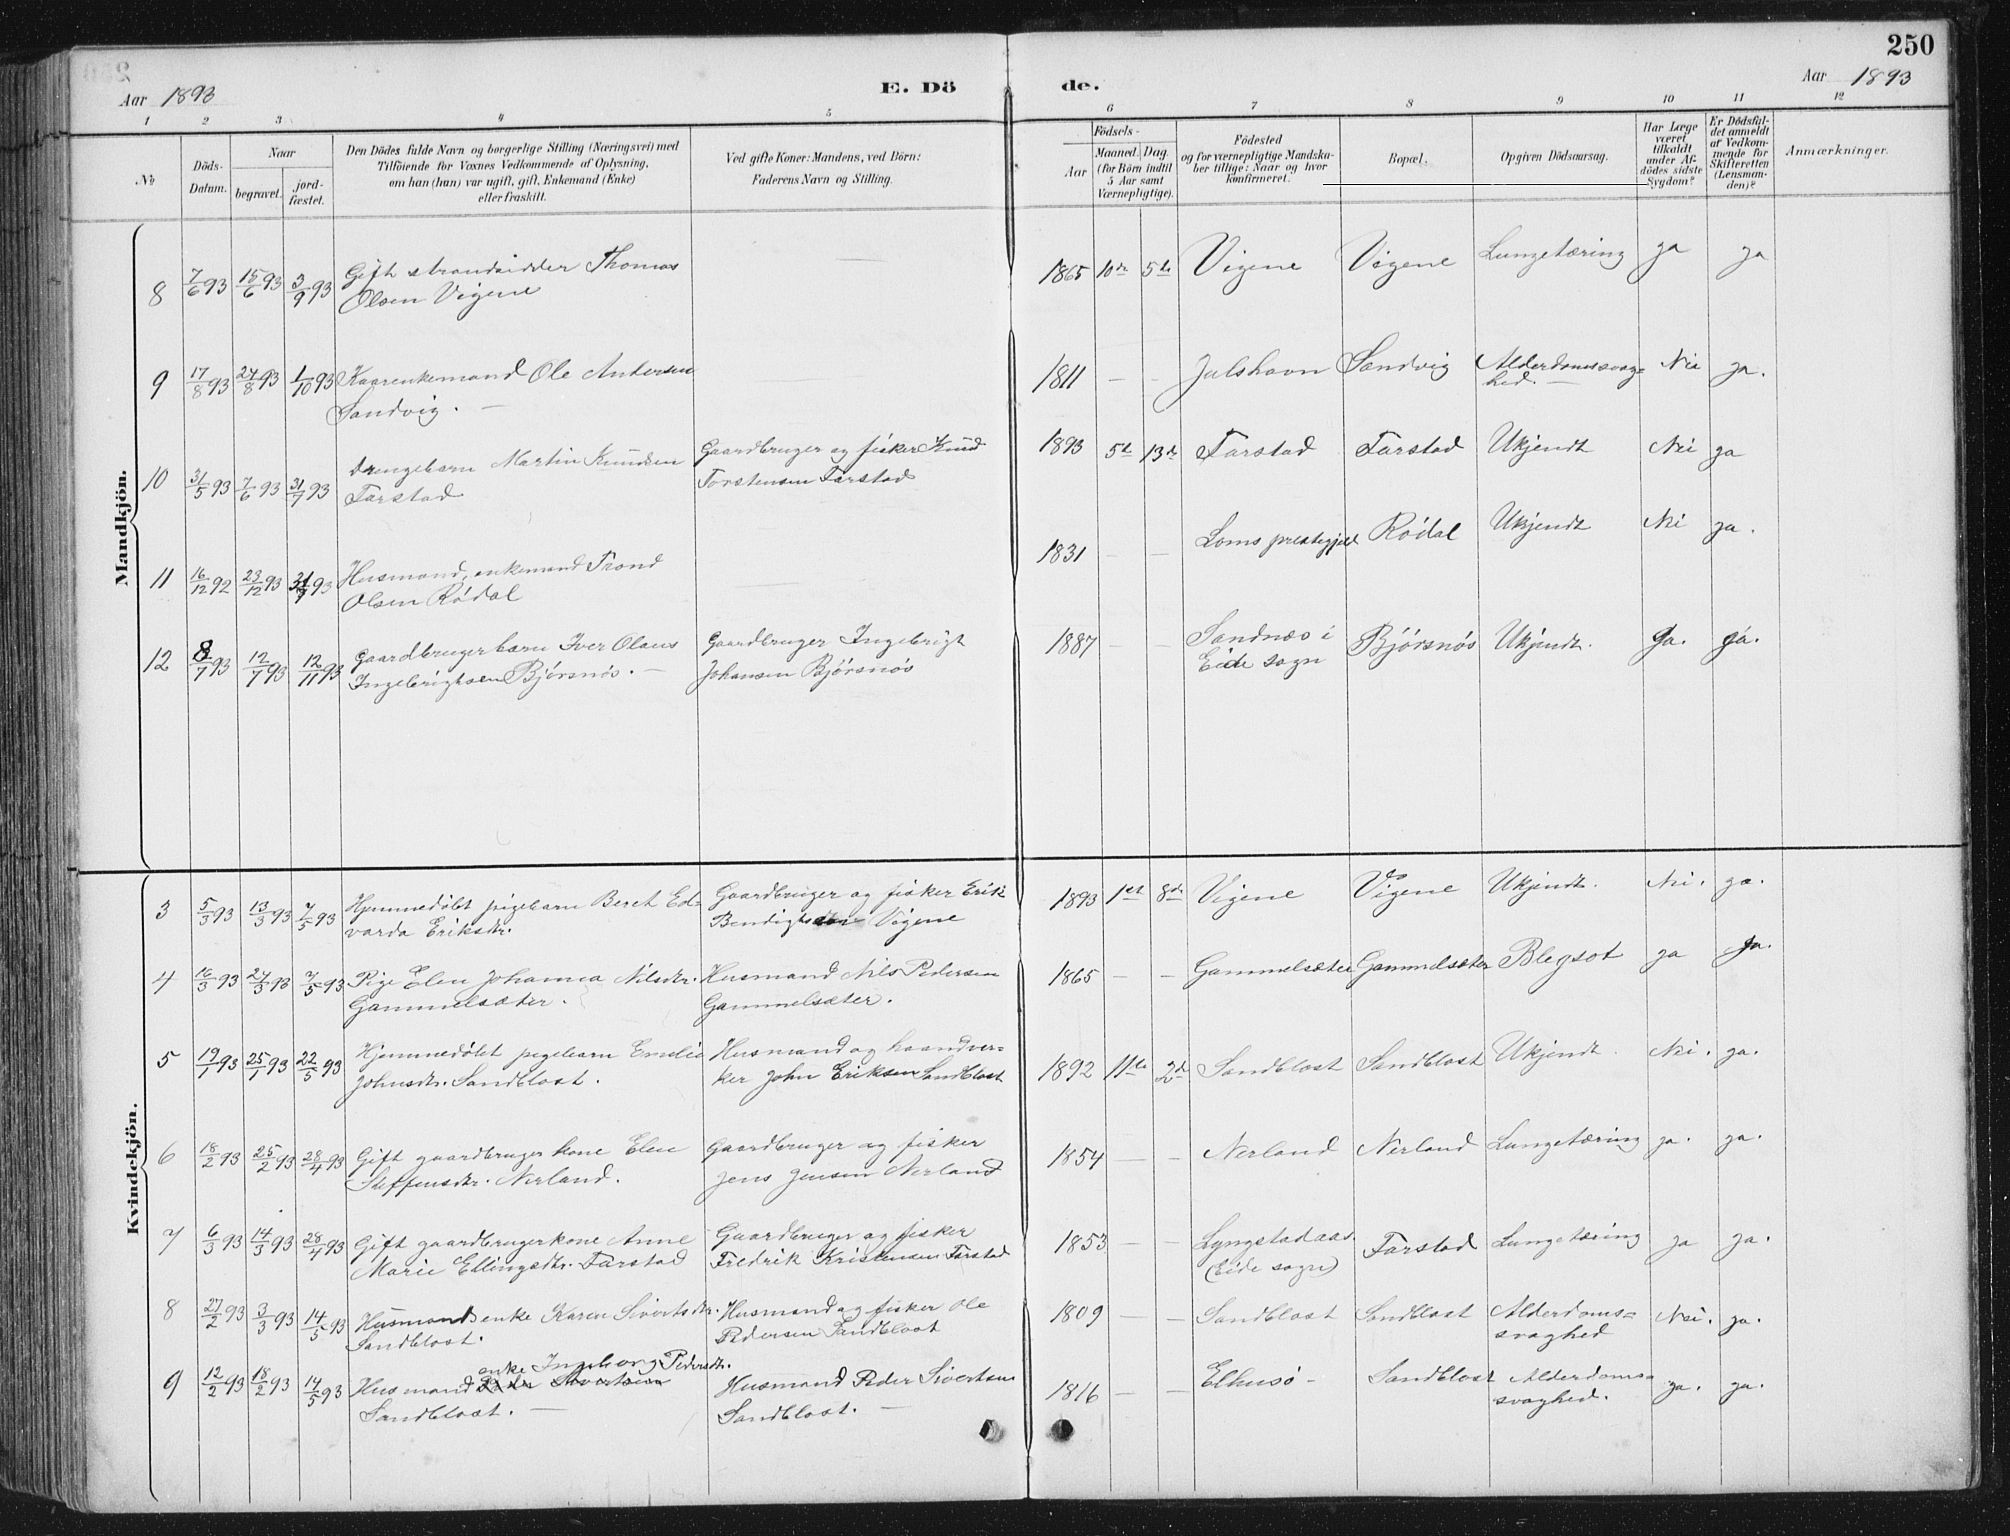 250
Aar 1893
E. Dö
de.
Aar 1893
1 2 3 4 5 6 7 8 9 10 11 12
№
Döds-Datum.
Naar
begravet.
jord-fæstet.
Den Dödes fulde Navn og borgerlige Stilling (Næringsvei) med
Tilföiende for Voxnes Vedkommende af Oplysning,
om han (hun) var ugift, gift, Enkemand (Enke)
eller fraskilt.
Ved gifte Koner: Mandens, ved Börn:
Faderens Navn og Stilling.
Födsels-
Aar
Maaned. Dag.
(for Börn indtil
5 Aar samt
Værnepligtige).
Födested
og for værnepligtige Mandska-
ber tillige: Naar og hvor
konfirmeret.
Bopæl.
Opgiven Dödsaarsag.
Har Læge
været
tilkaldt
under Af-
dödes sidste
Sygdom?
Er Dödsfal-
det anmeldt
af Vedkom-
mende for
Skifteretten
(Lensman-
den)?
Anmærkninger.
Mandkjön.
8 7/6 93 15/6 93 3/9 93 Gift strandsidder Thomas — 1865 10de 5te Vigene Vigene Lungetæring ja ja
Olsen Vigene
9 17/8 93 27/8 93 1/10 93 Kaarenkemand Ole Andersen 1811 — — Julshavn Sandvig Alderdomssvag- Nei ja.
Sandvig. — hed. —
10 31/5 93 7/6 93 31/7 93 drengebarn Martin Knudsen Gaardbruger og fisker Knud 1893 5te 13de Farstad Farstad Ukjendt Nei ja
Farstad Torstensen Farstad
11 16/12 92 23/12 93 93 Husmand, enkemand Trond 1831 — — Loms prestegjeld Rødal Ukjendt Nei ja.
Olsen Rødal
12 8/7 93 12/7 93 12/11 93 Gaardbrugerbarn Iver Olaus Gaardbruger Ingebrigt 1887 — — Sandnæs i Bjørsnøs Ukjendt. Ja. ja.
Ingebrigtsen Bjørsnøs. — Johansen Bjørsnøs Eide sogn
Kvindekjön.
3 5/3 93 13/3 93 7/5 93 Hjemmedøbt pigebarn Beret Ed- Gaardbruger og fisker Erik 1893 1ste 8de Vigene Vigene Ukjendt. Nei. ja.
varda Eriksdtr. Bendigtsen Vigene
4 16/3 93 27/3 93 7/5 93 Pige Elen Johanna Nilsdtr. Husmand Nils Pedersen 1865 — — Gammelsæter Gammelsæter Blegsot ja ja.
Gammelsæter. Gammelsæter.
5 19/1 93 25/1 93 22/5 93 Hjemmedøbt pigebarn Emelie Husmand og haandver- 1892 11te 2de Sandblost Sandblost Ukjendt. Nei. ja.
Johnsdtr. Sandblost. ker John Eriksen Sandblost
6 18/2 93 25/2 93 28/4 93 Gift gaardbruger kone Elen Gaardbruger og fisker 1854 — — Nerland Nerland Lungetæring ja. ja.
Steffensdtr. Nerland. Jens Jensen Nerland
7 6/3 93 14/3 93 28/4 93 Gift gaardbrugerkone Anne Gaardbruger og fisker 1853 — — Lyngstadaas Farstad Lungetæring ja ja.
Marie Ellingsdtr. Farstad Fredrik Kristensen Farstad (Eide sogn)
8 27/2 93 3/3 93 14/5 93 Husmandsenke Karen Sivertsdtr. Husmand og fisker Ole 1809 — — Sandblost Sandblost Alderdoms- Nei. ja.
Sandblost. Pedersen Sandblost svaghed
enke Ingeborg Pedersdtr.
9 12/2 93 18/2 93 14/5 93 Husmand Peder Sivertsen Husmand Peder Sivertsen 1816 — — Elhusø — Sandblost Alderdoms- ja. ja.
Sandblost. — Sandblost. — svaghed.